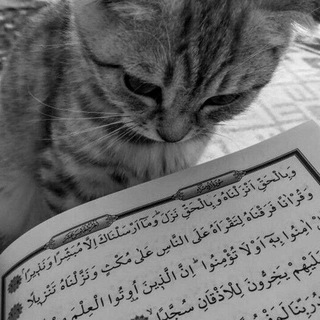 وَبِالْحَقِّ اَنْزَلْنَاهُ وَبِالْحَقِّ نَزَلَ وَمَا اَرْسَلْنَاكَ اِلَّا مُبَشِّرًا وَنَذِيرًا
وَقُرْاٰنًا فَرَقْنَاهُ لِتَقْرَاَهُ عَلَى النَّاسِ عَلٰى مُكْثٍ وَنَزَّلْنَاهُ تَنْزِيلًا
اٰمِنُوا بِهٖٓ اَوْ لَا تُؤْمِنُوا اِنَّ الَّذِينَ اُوتُوا الْعِلْمَ
عَلَيْهِمْ يَخِرُّونَ لِلْاَذْقَانِ سُجَّدًا
رَبِّنَا